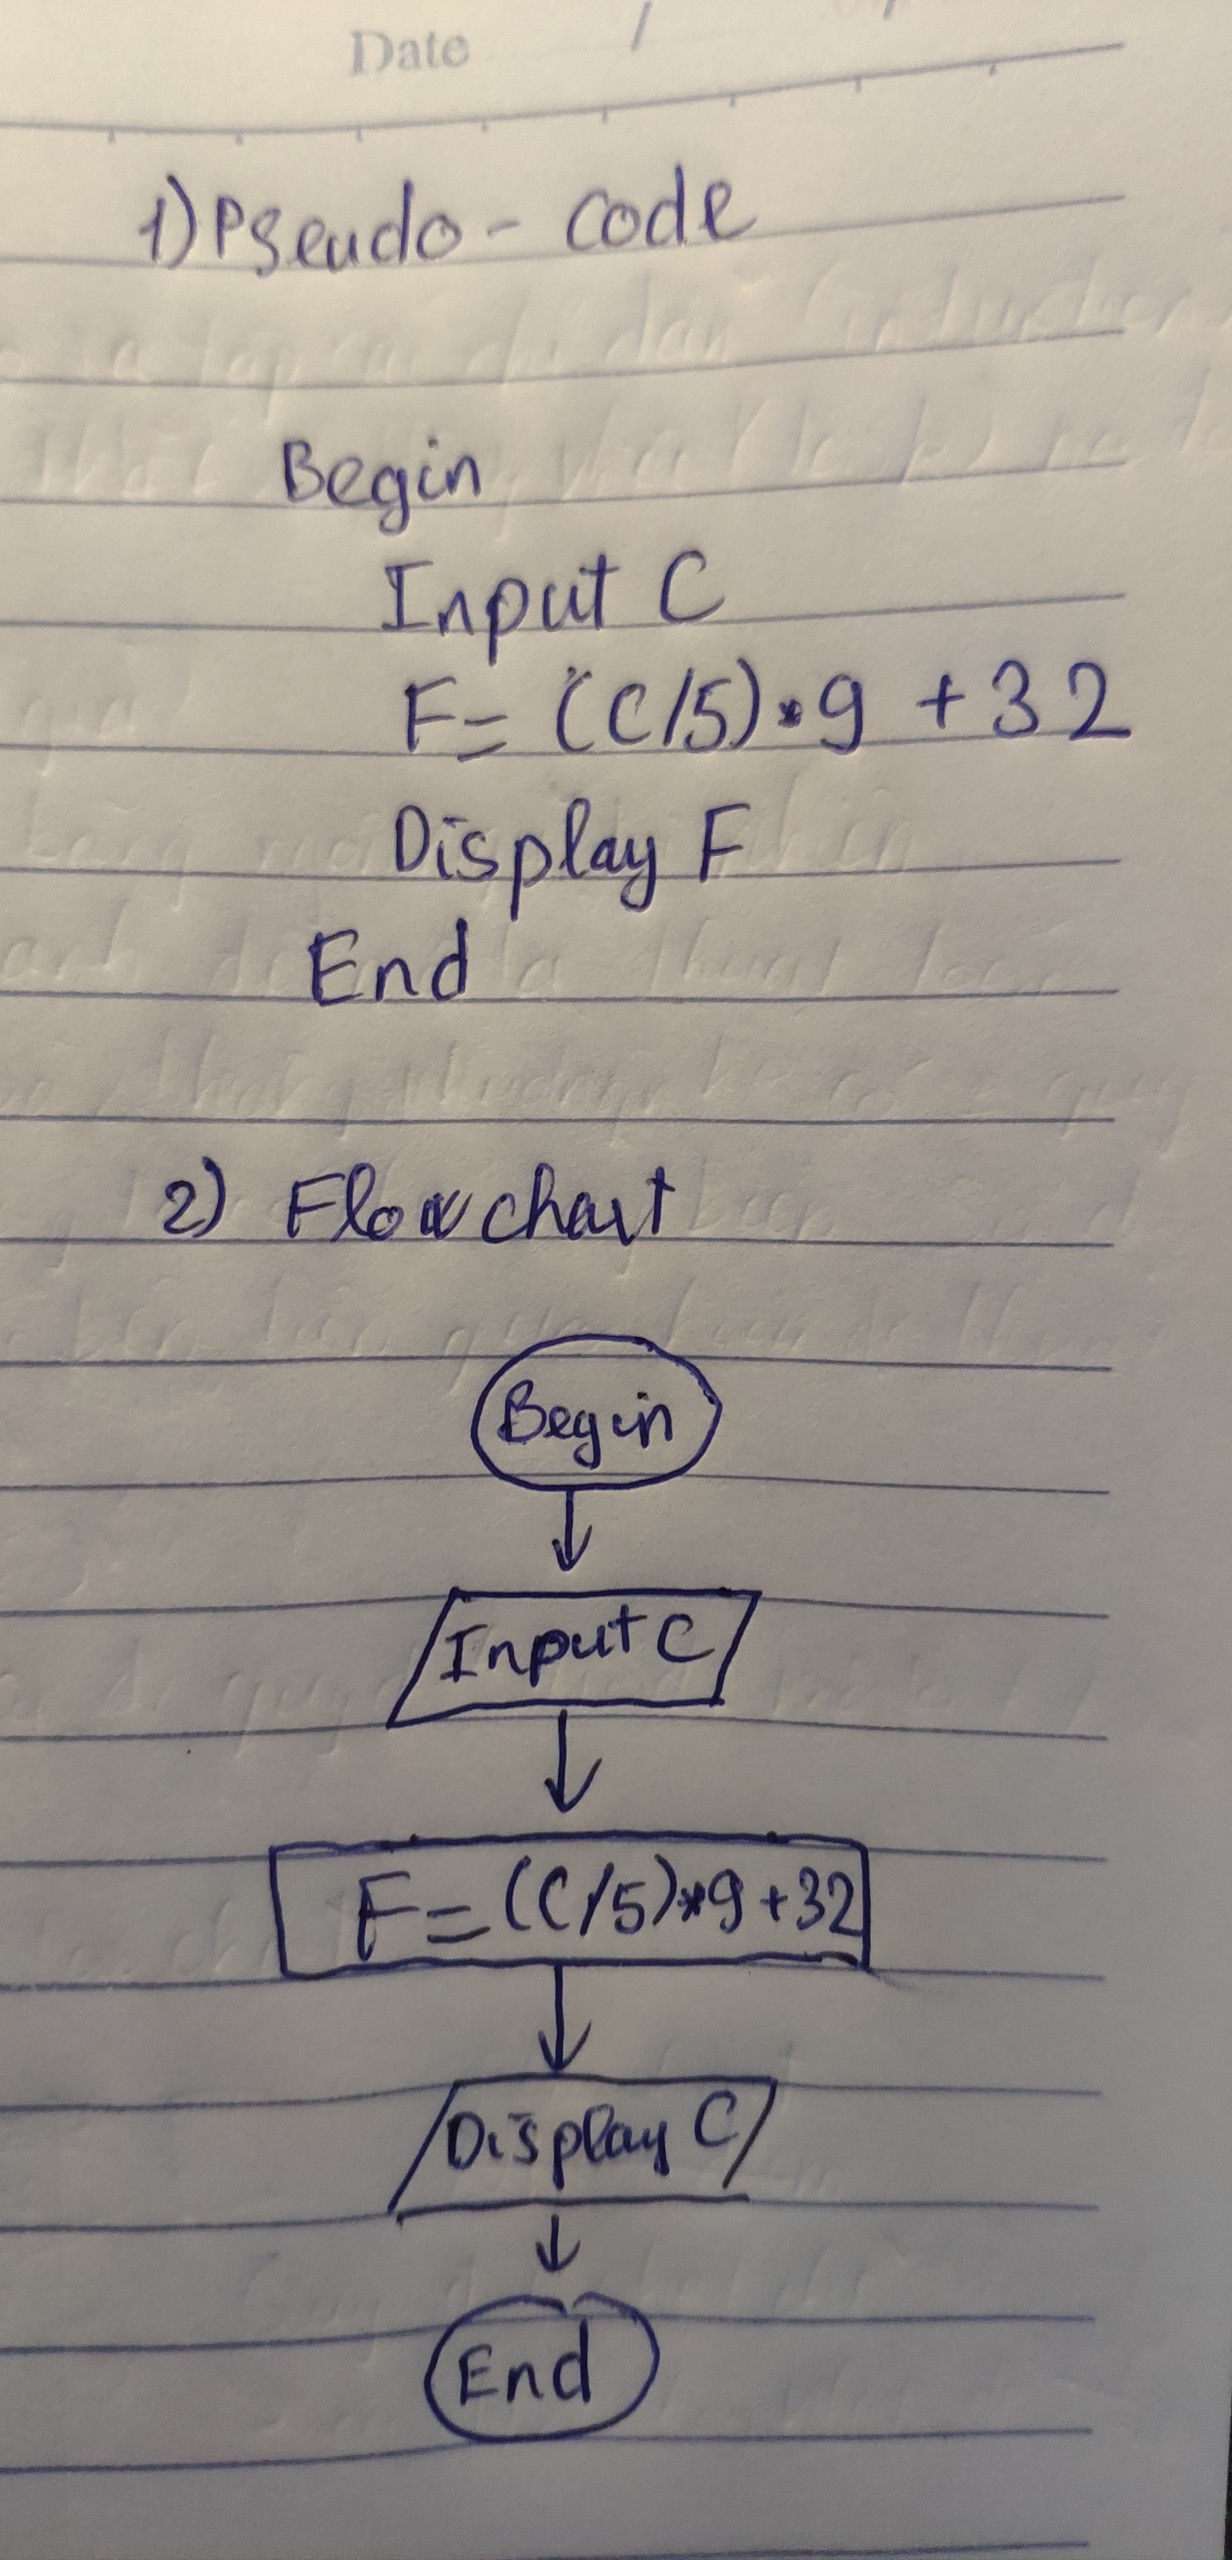 Date /
1) Pseudo - code
Begin
Input C
F = (C/5) * 9 + 32
Display F
End
2) Flowchart
Begin
Input C
F = (C/5) * 9 + 32
Display C
End